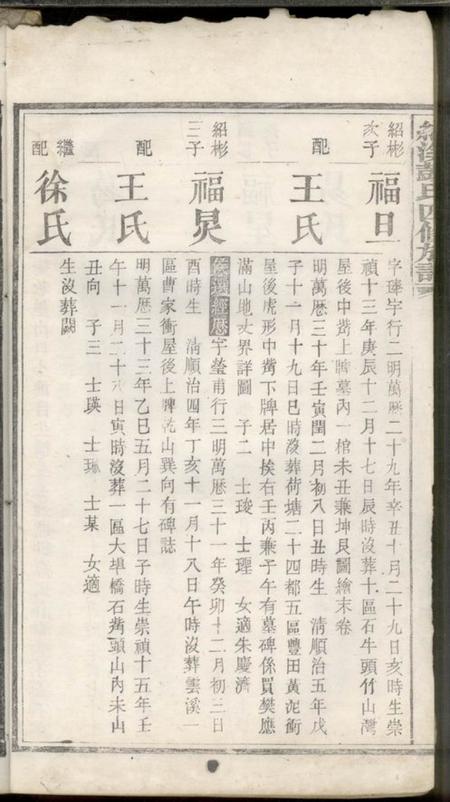 紹彬次子
福旦
字瑧宇行二明萬歷二十九年辛丑十月二十九日亥時生崇
禎十三年庚辰十二月十七日辰時沒葬十區石牛頭竹山灣
屋後中嘴上牌墓內一棺未丑兼坤艮圖繪末卷
配
王氏
明萬歷三十年壬寅閏二月初八日丑時生 清順治五年戊
子十一月十九日巳時沒葬荷塘二十四都五區豐田黃泥衝
屋後虎形中嘴下牌居中挨右壬丙兼子午有墓碑係買樊應
滿山地丈界詳圖 子二 士琝 士理 女適朱慶濟
紹彬三子
福炅
候選經歷字瑩甫行三明萬歷三十一年癸卯十二月初三日
酉時生 清順治四年丁亥十一月十八日午時沒葬雲溪一
區曹家衝屋後上牌乾山巽向有碑誌
配
王氏
明萬歷三十三年乙巳五月二十七日子時生崇禎十五年壬
午十一月二十八日寅時沒葬一區大埠橋石嘴頭山內未山
丑向 子三 士瑛 士琢 士某 女適
繼配
徐氏
生沒葬闕
氏四修族譜